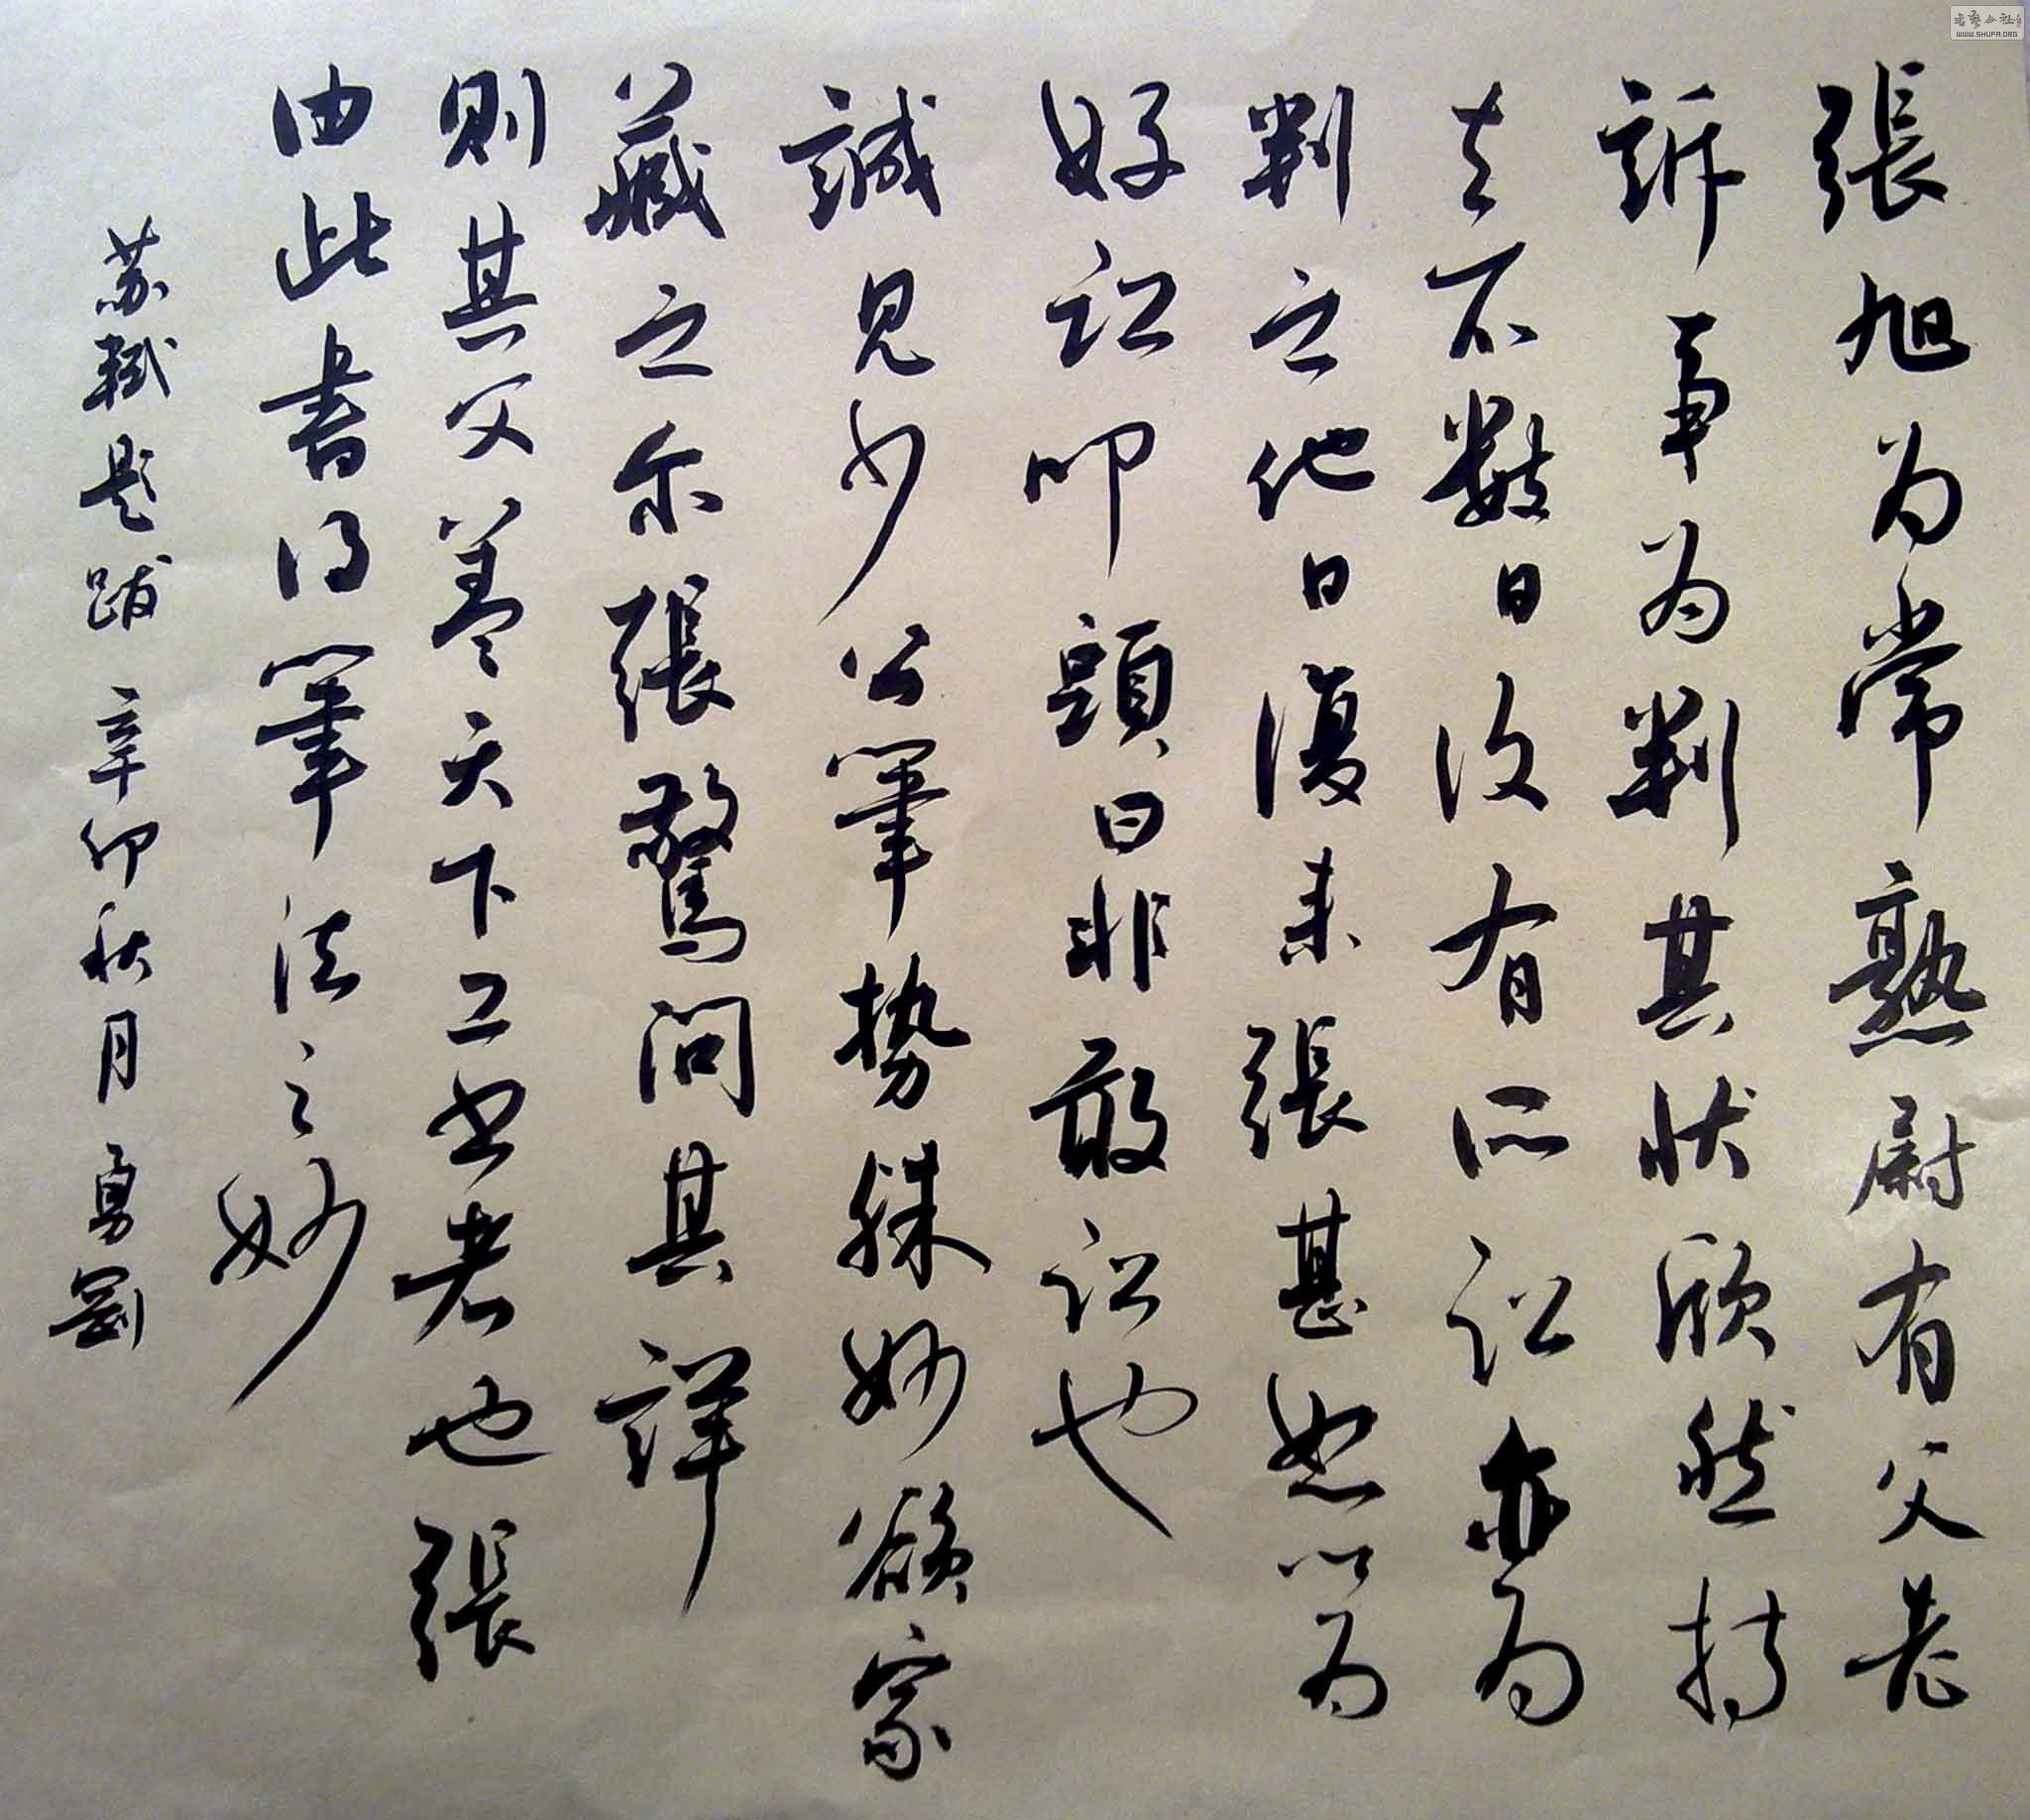 張旭为常熟尉有父老
訴事为判其状欣然持
去不数日復有所訟亦为
判之他日復来張甚怒以为
好訟叩頭曰非敢訟也
誠見少公筆勢殊妙欲家
藏之尔張驚問其詳
則其父盖天下工書者也張
由此書得筆法之妙
苏軾题跋 辛卯秋月勇剛
WWW.SHUFA.ORG